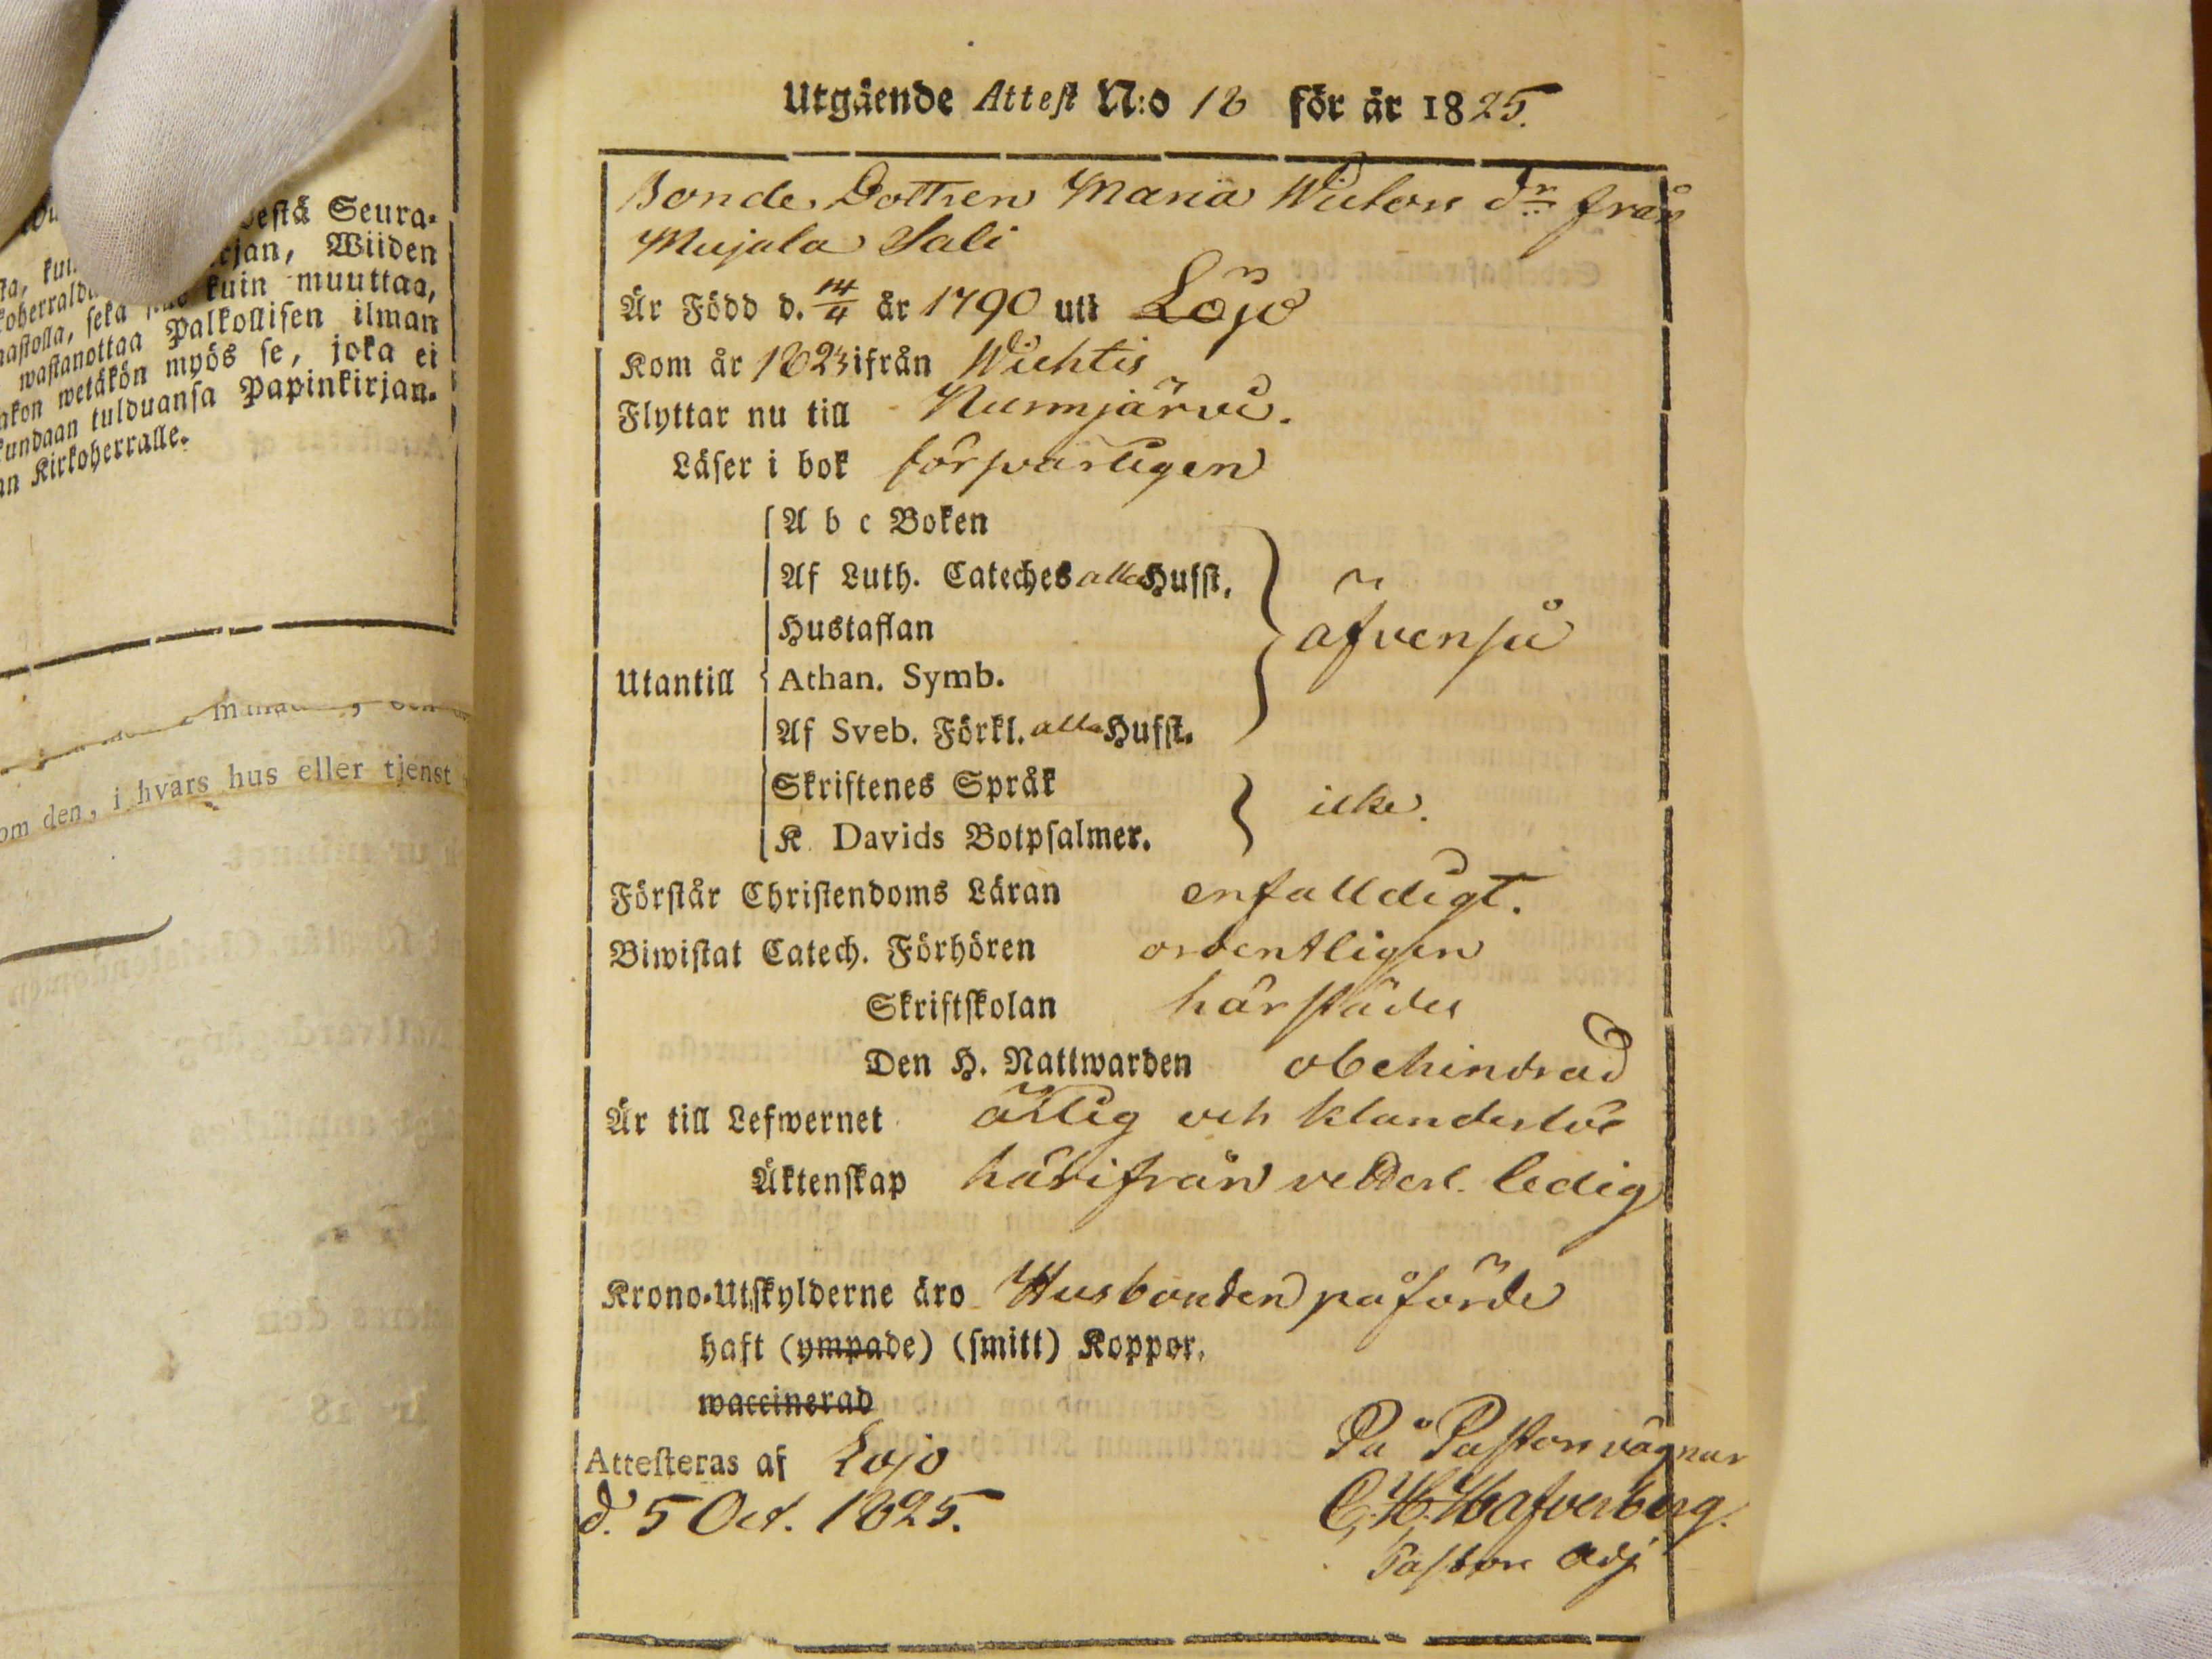 estä Seura-
rjan, Wiiden
kuin muuttaa,
wastanottaa Palkollisen ilman
wetäkön myös se, joka ei
kundaan tulduansa Papinkirjan-
Kirkoherralle.
om den, i hvars hus eller tjenst
Utgående Attest N:o 18 för år 1825.
Bonde Dottren Maria Victors dr från
Mujala Sali
Är Född d. 14/4 år 1790 uti Lojo
Kom år 1823 ifrån Wichtis
Flyttar nu till Nurmjärvi.
Läser i bok försvarligen
A b c Boken
Af Luth. Cateches alla Hufst.
Hustaflan
äfvenså
Utantill
Athan. Symb.
Af Sveb. Förkl. alla Hufst.
Skriftenes Språk
icke.
K. Davids Botpsalmer.
Förstår Christendoms Läran enfalldigt.
Biwistat Catech. Förhören ordentligen
Skriftskolan härstädes
Den H. Nattwarden obehindrad
Är till Lefwernet ärlig och klanderlös
Äktenskap härifrån vederl. ledig
Krono-Utskylderne äro Husbonden påförde
haft (ympade) (smitt) Koppor.
waccinerad
Attesteras af Lojo
d. 5 Oct. 1825.
På Pastors vägnar
C. H. Hafverberg.
Pastors Adj